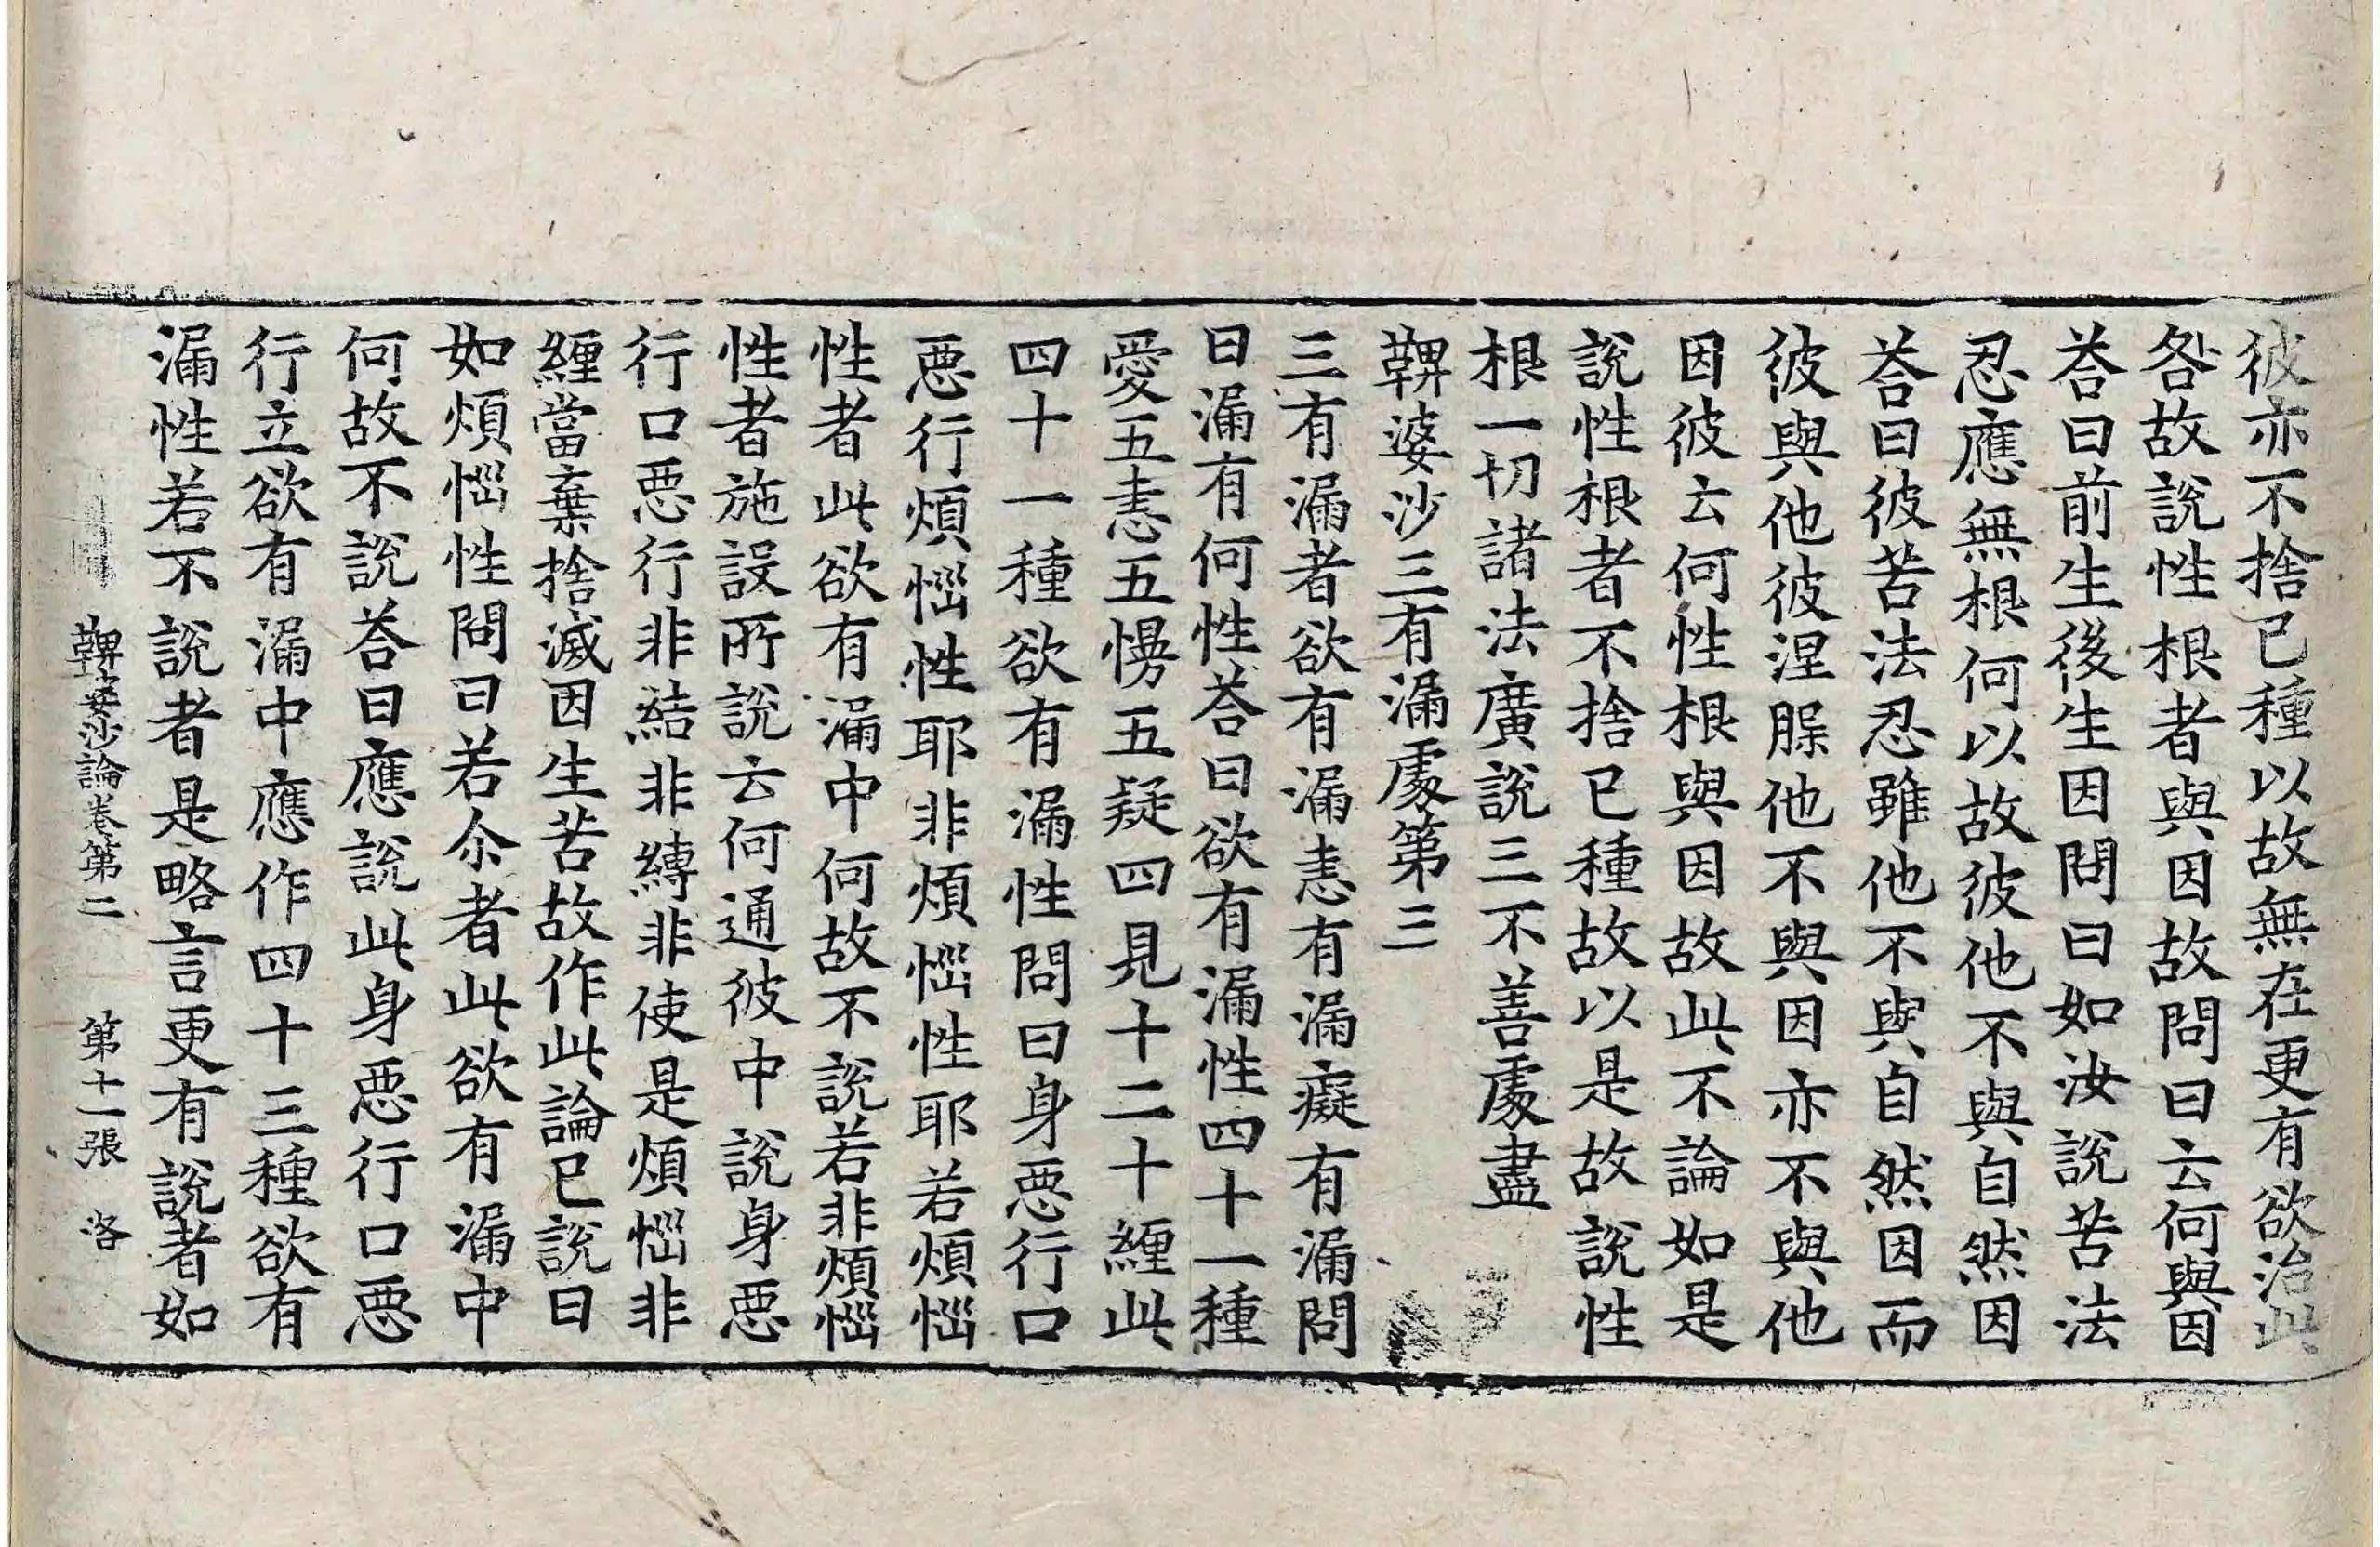 彼亦不捨已種以故無在更有欲治此
咎故說性根者與因故問曰云何與因
荅曰前生後生因問曰如汝說苦法
忍應無根何以故彼他不與自然因
荅曰彼苦法忍雖他不與自然因而
彼與他彼涅脲他不與因亦不與他
因彼云何性根與因故此不論如是
說性根者不捨已種故以是故說性
根一切諸法廣說三不善處盡
鞞婆沙三有漏處第三
三有漏者欲有漏恚有漏癡有漏問
曰漏有何性荅曰欲有漏性四十一種
愛五恚五慢五疑四見十二十纏此
四十一種欲有漏性問曰身惡行口
惡行煩惱性耶非煩惱性耶若煩惱
性者此欲有漏中何故不說若非煩惱
性者施設所說云何通彼中說身惡
行口惡行非結非縛非使是煩惱非
纏當棄捨滅因生苦故作此論已說曰
如煩惱性問曰若尒者此欲有漏中
何故不說荅曰應說此身惡行口惡
行立欲有漏中應作四十三種欲有
漏性若不說者是略言更有說者如
鞞婆沙論卷第二 第十一張 洛